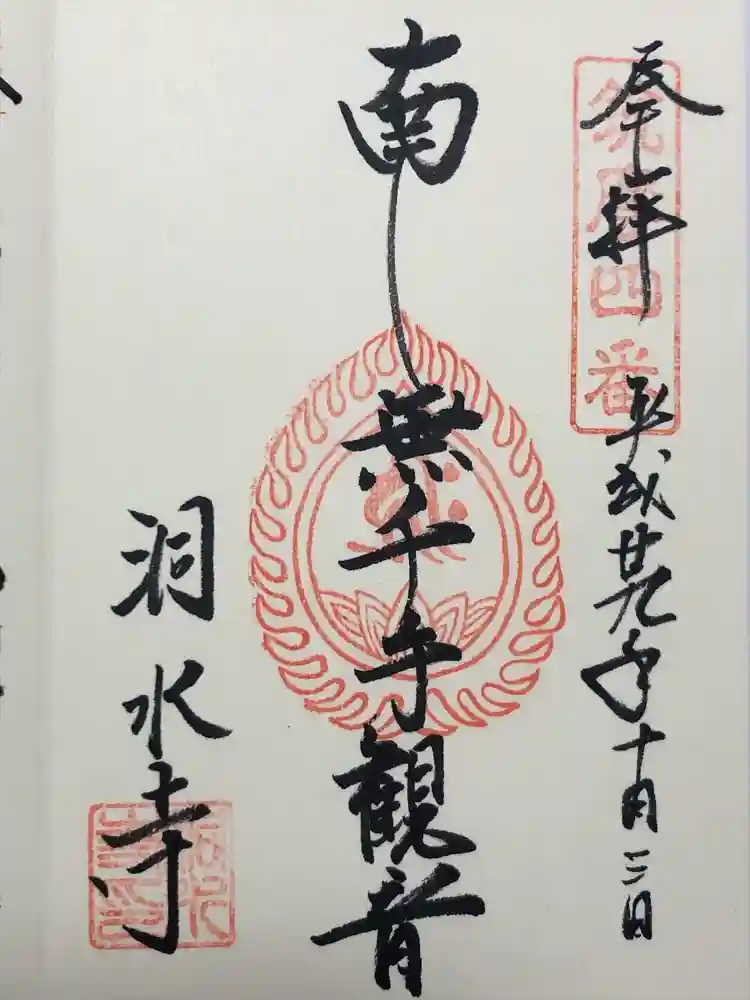 奉拝
四番
平成廿九年十月三日
南無千手観音
洞水寺